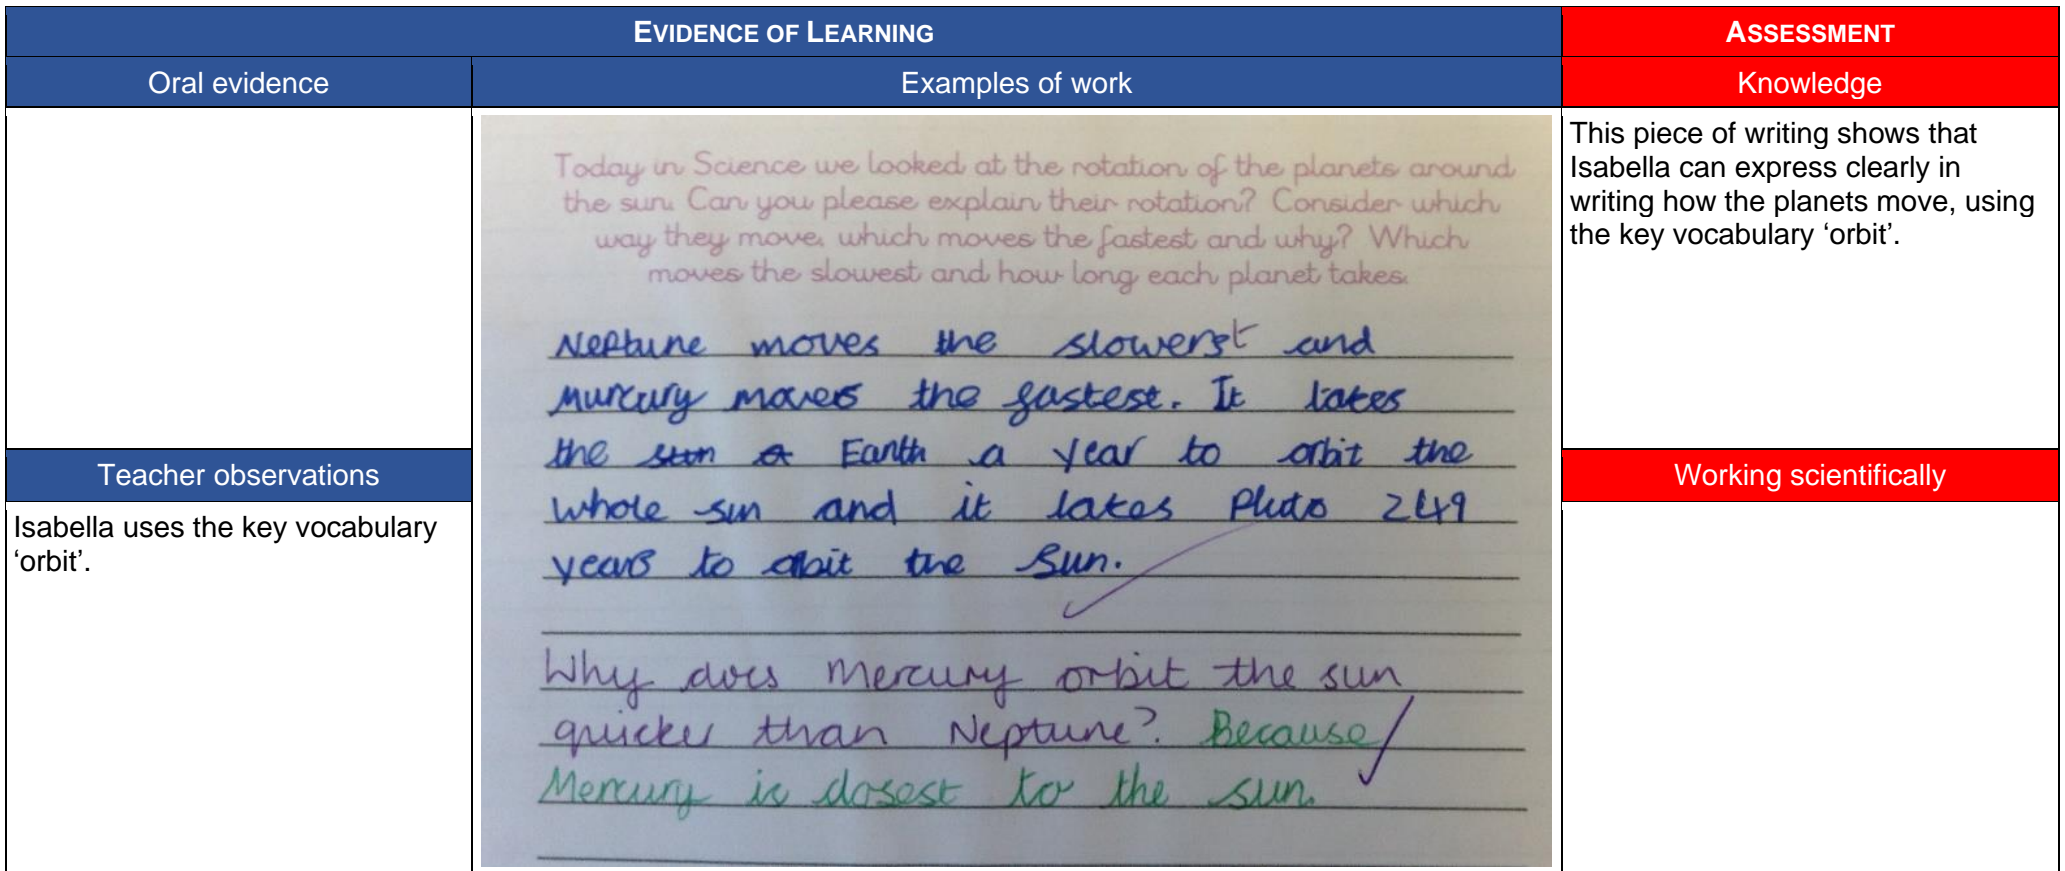 EVIDENCE OF LEARNING
ASSESSMENT
Oral evidence
Examples of work
Knowledge
Today in Science we looked at the rotation of the planets around
the sun. Can you please explain their rotation? Consider which
way they move, which moves the fastest and why? Which
moves the slowest and how long each planet takes.
Neptune moves the slowerst and
murcury moves the fastest. It takes
the sun a Earth a year to orbit the
whole sun and it takes Pluto 249
years to orbit the Sun.
Why does Mercury orbit the sun
quicker than Neptune? Because
Mercury is closest to the sun.
This piece of writing shows that
Isabella can express clearly in
writing how the planets move, using
the key vocabulary ‘orbit’.
Teacher observations
Isabella uses the key vocabulary
‘orbit’.
Working scientifically